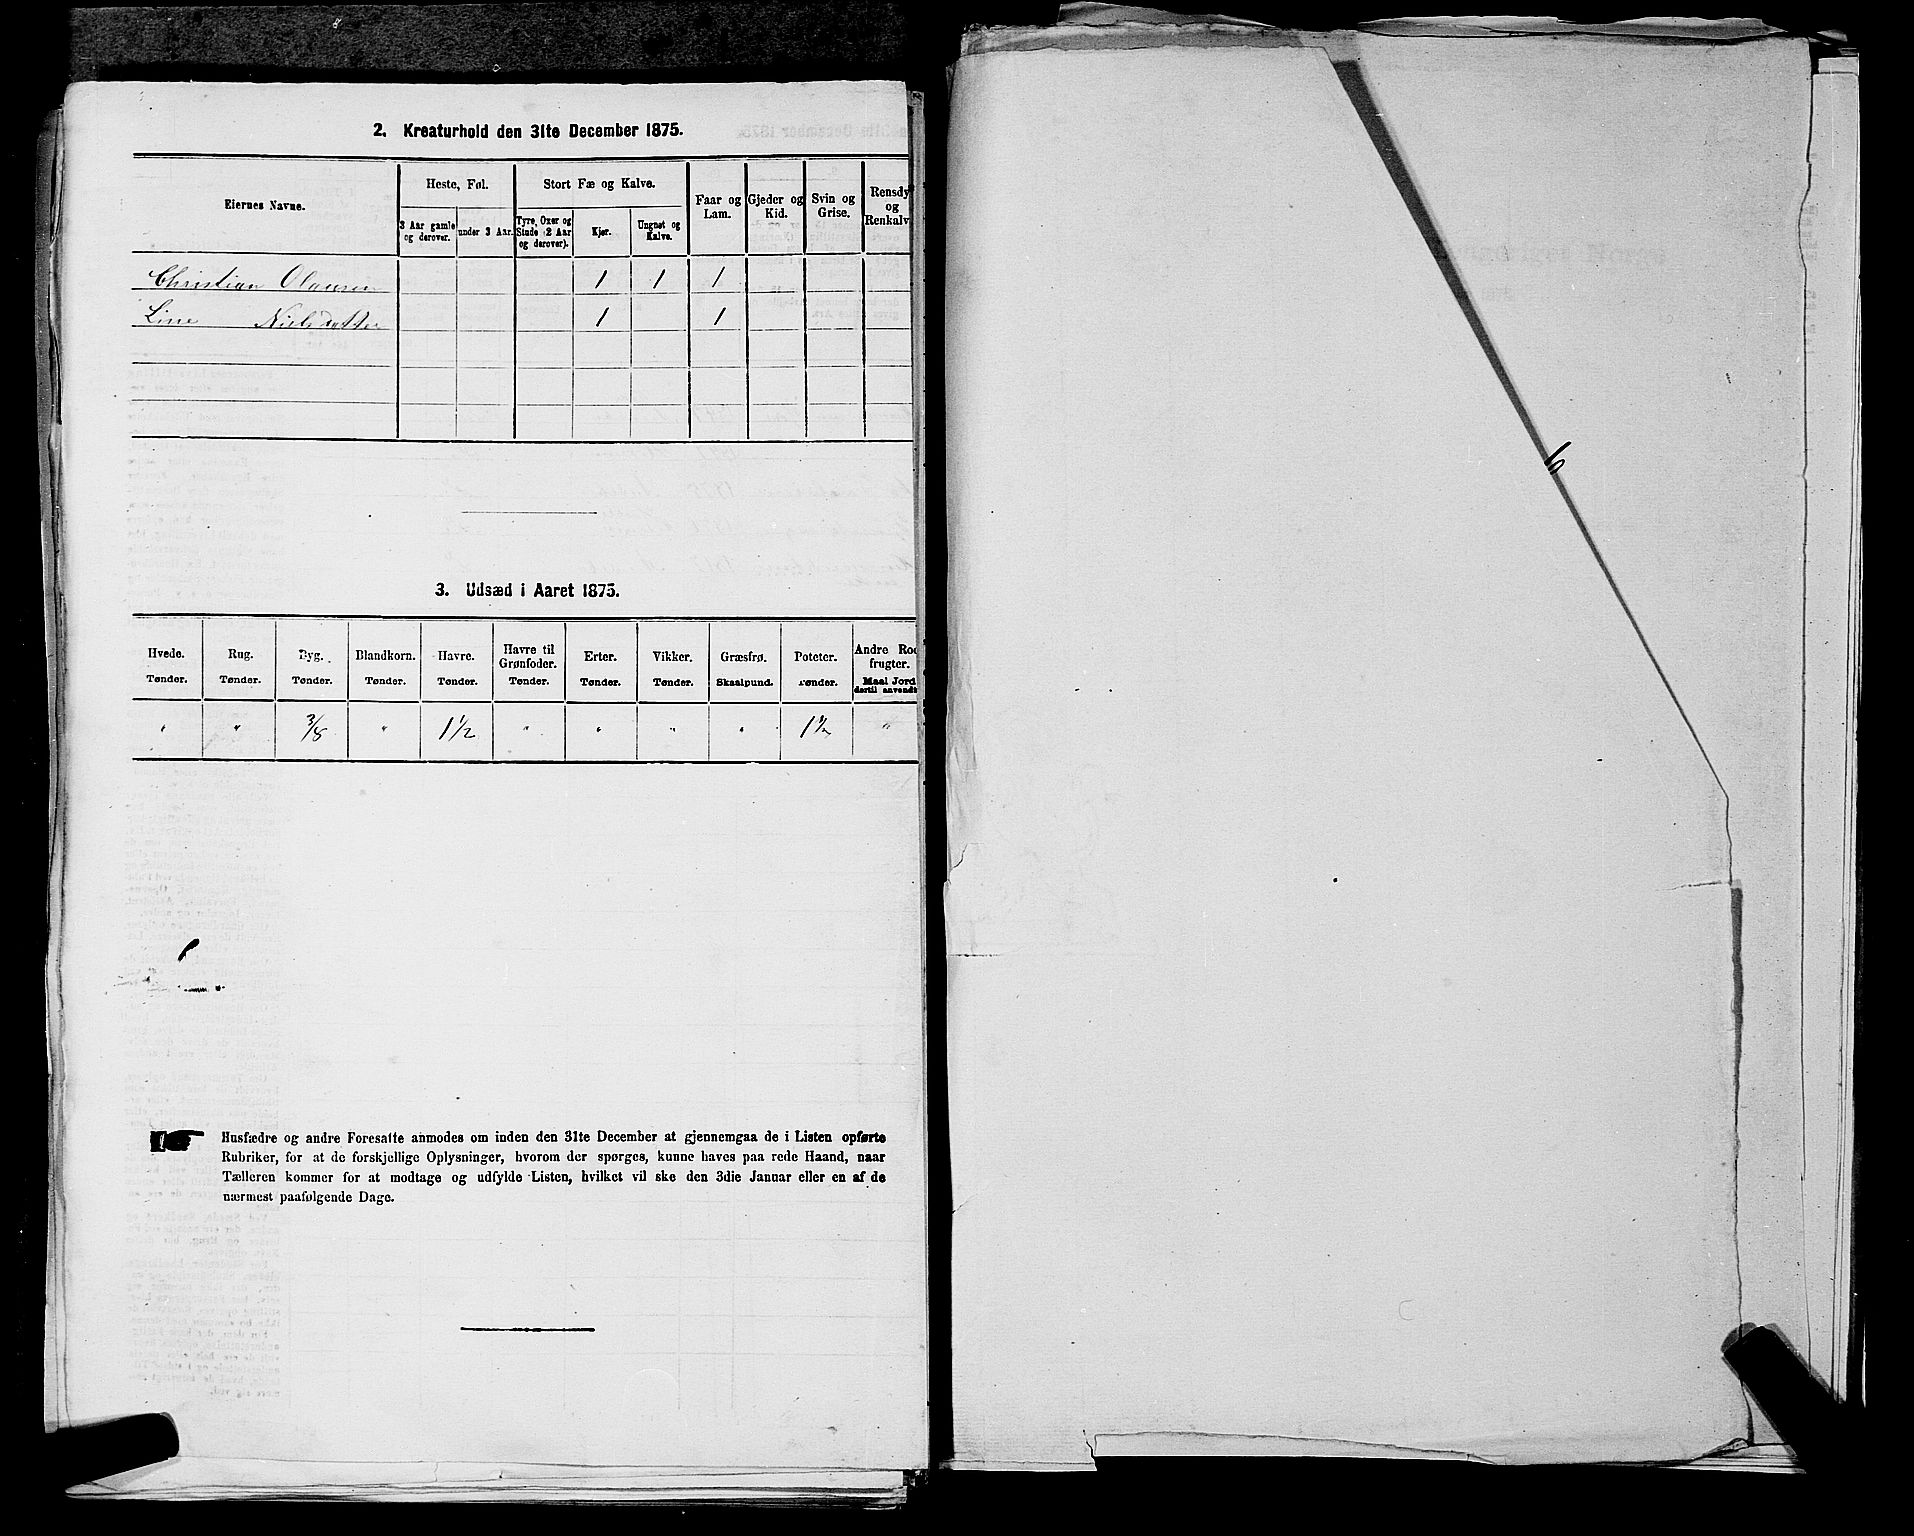 2. Kreaturhold den 31te December 1875.
Eiernes Navne.
Heste, Føl.
Stort Fæ og Kalve.
Faar og Lam.
Gjeder og Kid.
Svin og Grise.
Rensdy og Renkalv
3 Aar gamle og derover.
under 3 Aar.
Tyre, Oxer og Stude (2 Aar og derover).
Kjør.
Ungnøt og Kalve.
Christian Olausen 1 1 1
Line Nielsdatter 1 1
3. Udsæd i Aaret 1875.
Hvede. Rug. Byg. Blandkorn. Havre. Havre til Grønfoder. Erter. Vikker. Græsfrø. Poteter. Andre Rod frugter.
Tønder. Tønder. Tønder. Tønder. Tønder. Tønder. Tønder. Tønder. Skaalpund. Tønder. Maal Jord dertil anvendt
" " 3/8 " 1 1/2 " " " " 1 1/2 "
Husfædre og andre Foresatte anmodes om inden den 31te December at gjennemgaa de i Listen opførte
Rubriker, for at de forskjellige Oplysninger, hvorom der spørges, kunne haves paa rede Haand, naar
Tælleren kommer for at modtage og udfylde Listen, hvilket vil ske den 3die Januar eller en af de
nærmest paafølgende Dage.